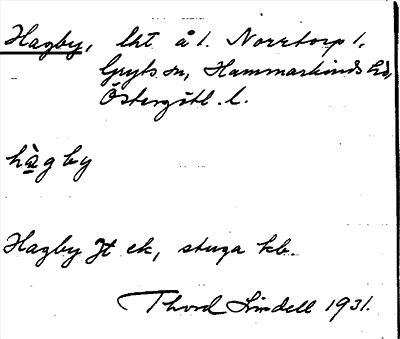 Hagby, lht. å 1. Norrtorp 1,
Gryts sn, Hammarkinds hd,
Östergötl. l.
hàgby
Hagby Jt ek, stuga kb.
Thord Lindell 1931.